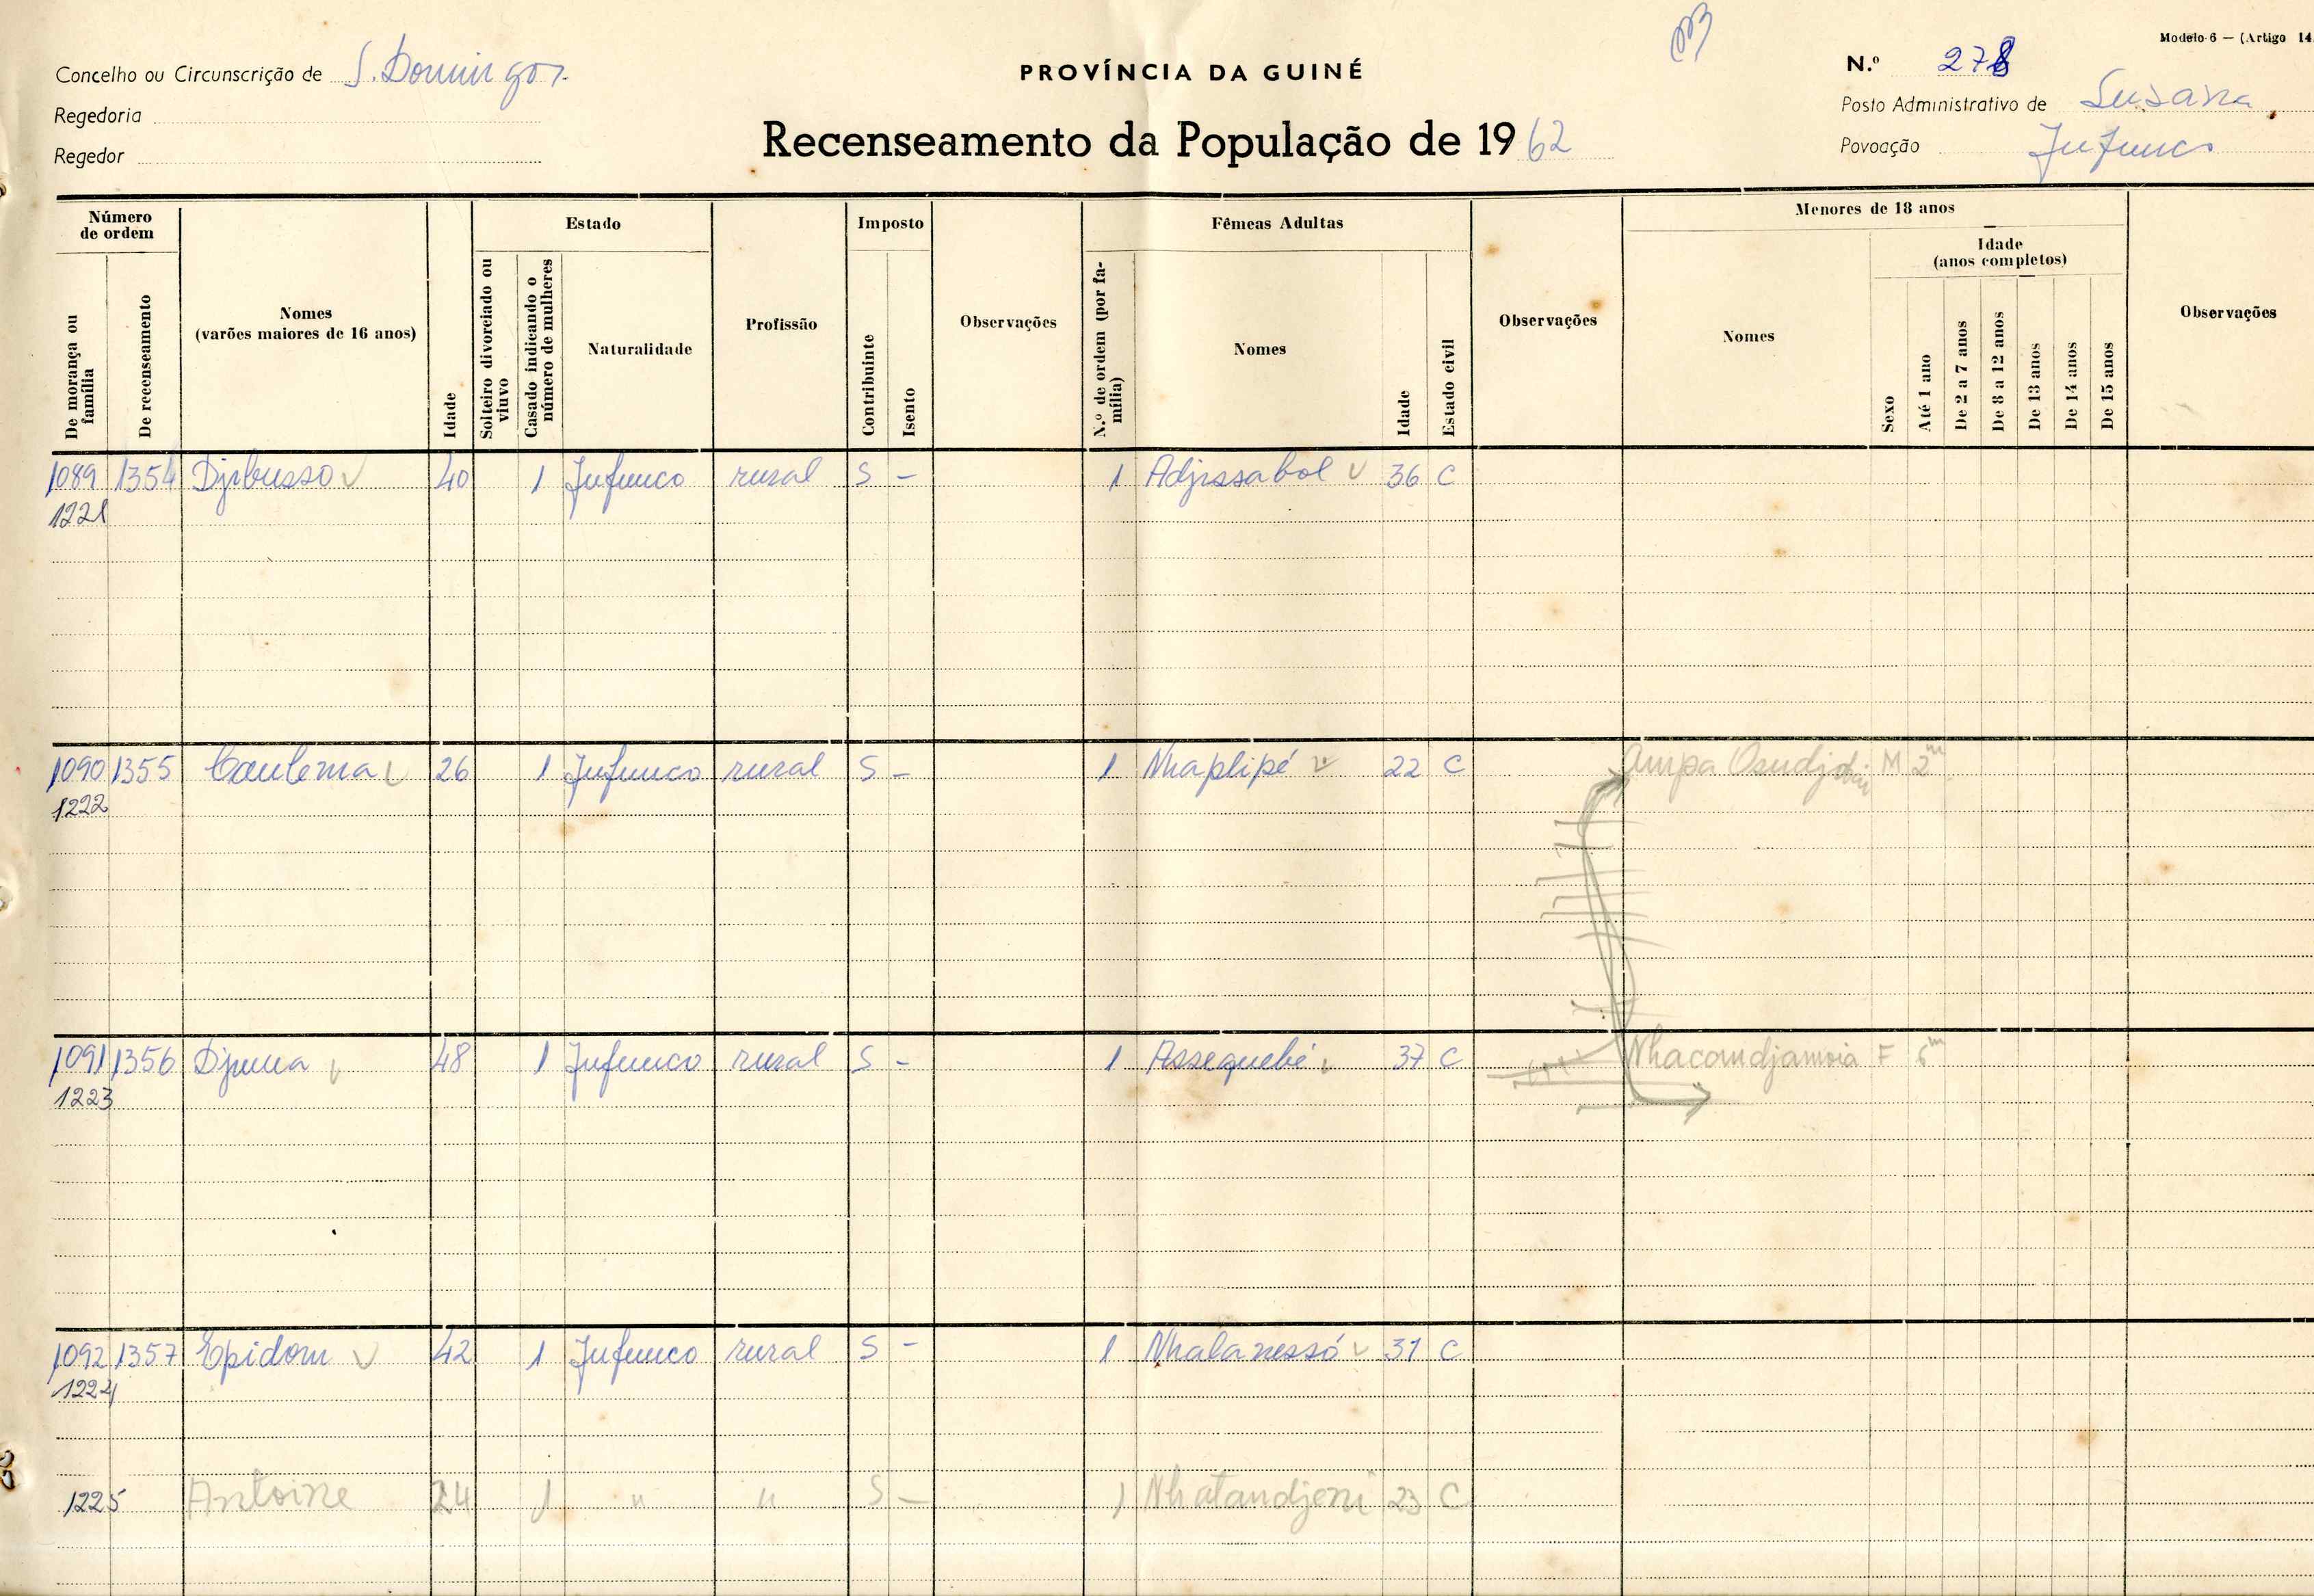 Modelo 6 — (Artigo 14
Concelho ou Circunscrição de S. Domingos
PROVÍNCIA DA GUINÉ
N.º 278
Regedoria
Posto Administrativo de Susana
Regedor
Recenseamento da População de 1962
Povoação Jufunco
Número de ordem
De morança ou família
De recenseamento
Nomes
(varões maiores de 16 anos)
Idade
Estado
Solteiro divorciado ou viuvo
Casado indicando o número de mulheres
Naturalidade
Profissão
Imposto
Contribuinte
Isento
Observações
Fêmeas Adultas
N.º de ordem (por família)
Nomes
Idade
Estado civil
Observações
Menores de 18 anos
Nomes
Sexo
Idade
(anos completos)
Até 1 ano
De 2 a 7 anos
De 8 a 12 anos
De 13 anos
De 14 anos
De 15 anos
Observações
1089 1354 Djibusso 40 1 Jufunco rural S - 1 Adjissabol 36 C
1221
1090 1355 Caulema 26 1 Jufunco rural S - 1 Nhaplipé 22 C Ampa M 2m
1222
1091 1356 Djuma 48 1 Jufunco rural S - 1 Assequebé 37 C Nhacomdjamoia F 6m
1223
1092 1357 Epidom 42 1 Jufunco rural S - 1 Nhalanessó 31 C
1224
1225 Antoine 24 1 " " S - 1 Nhatandjeni 23 C